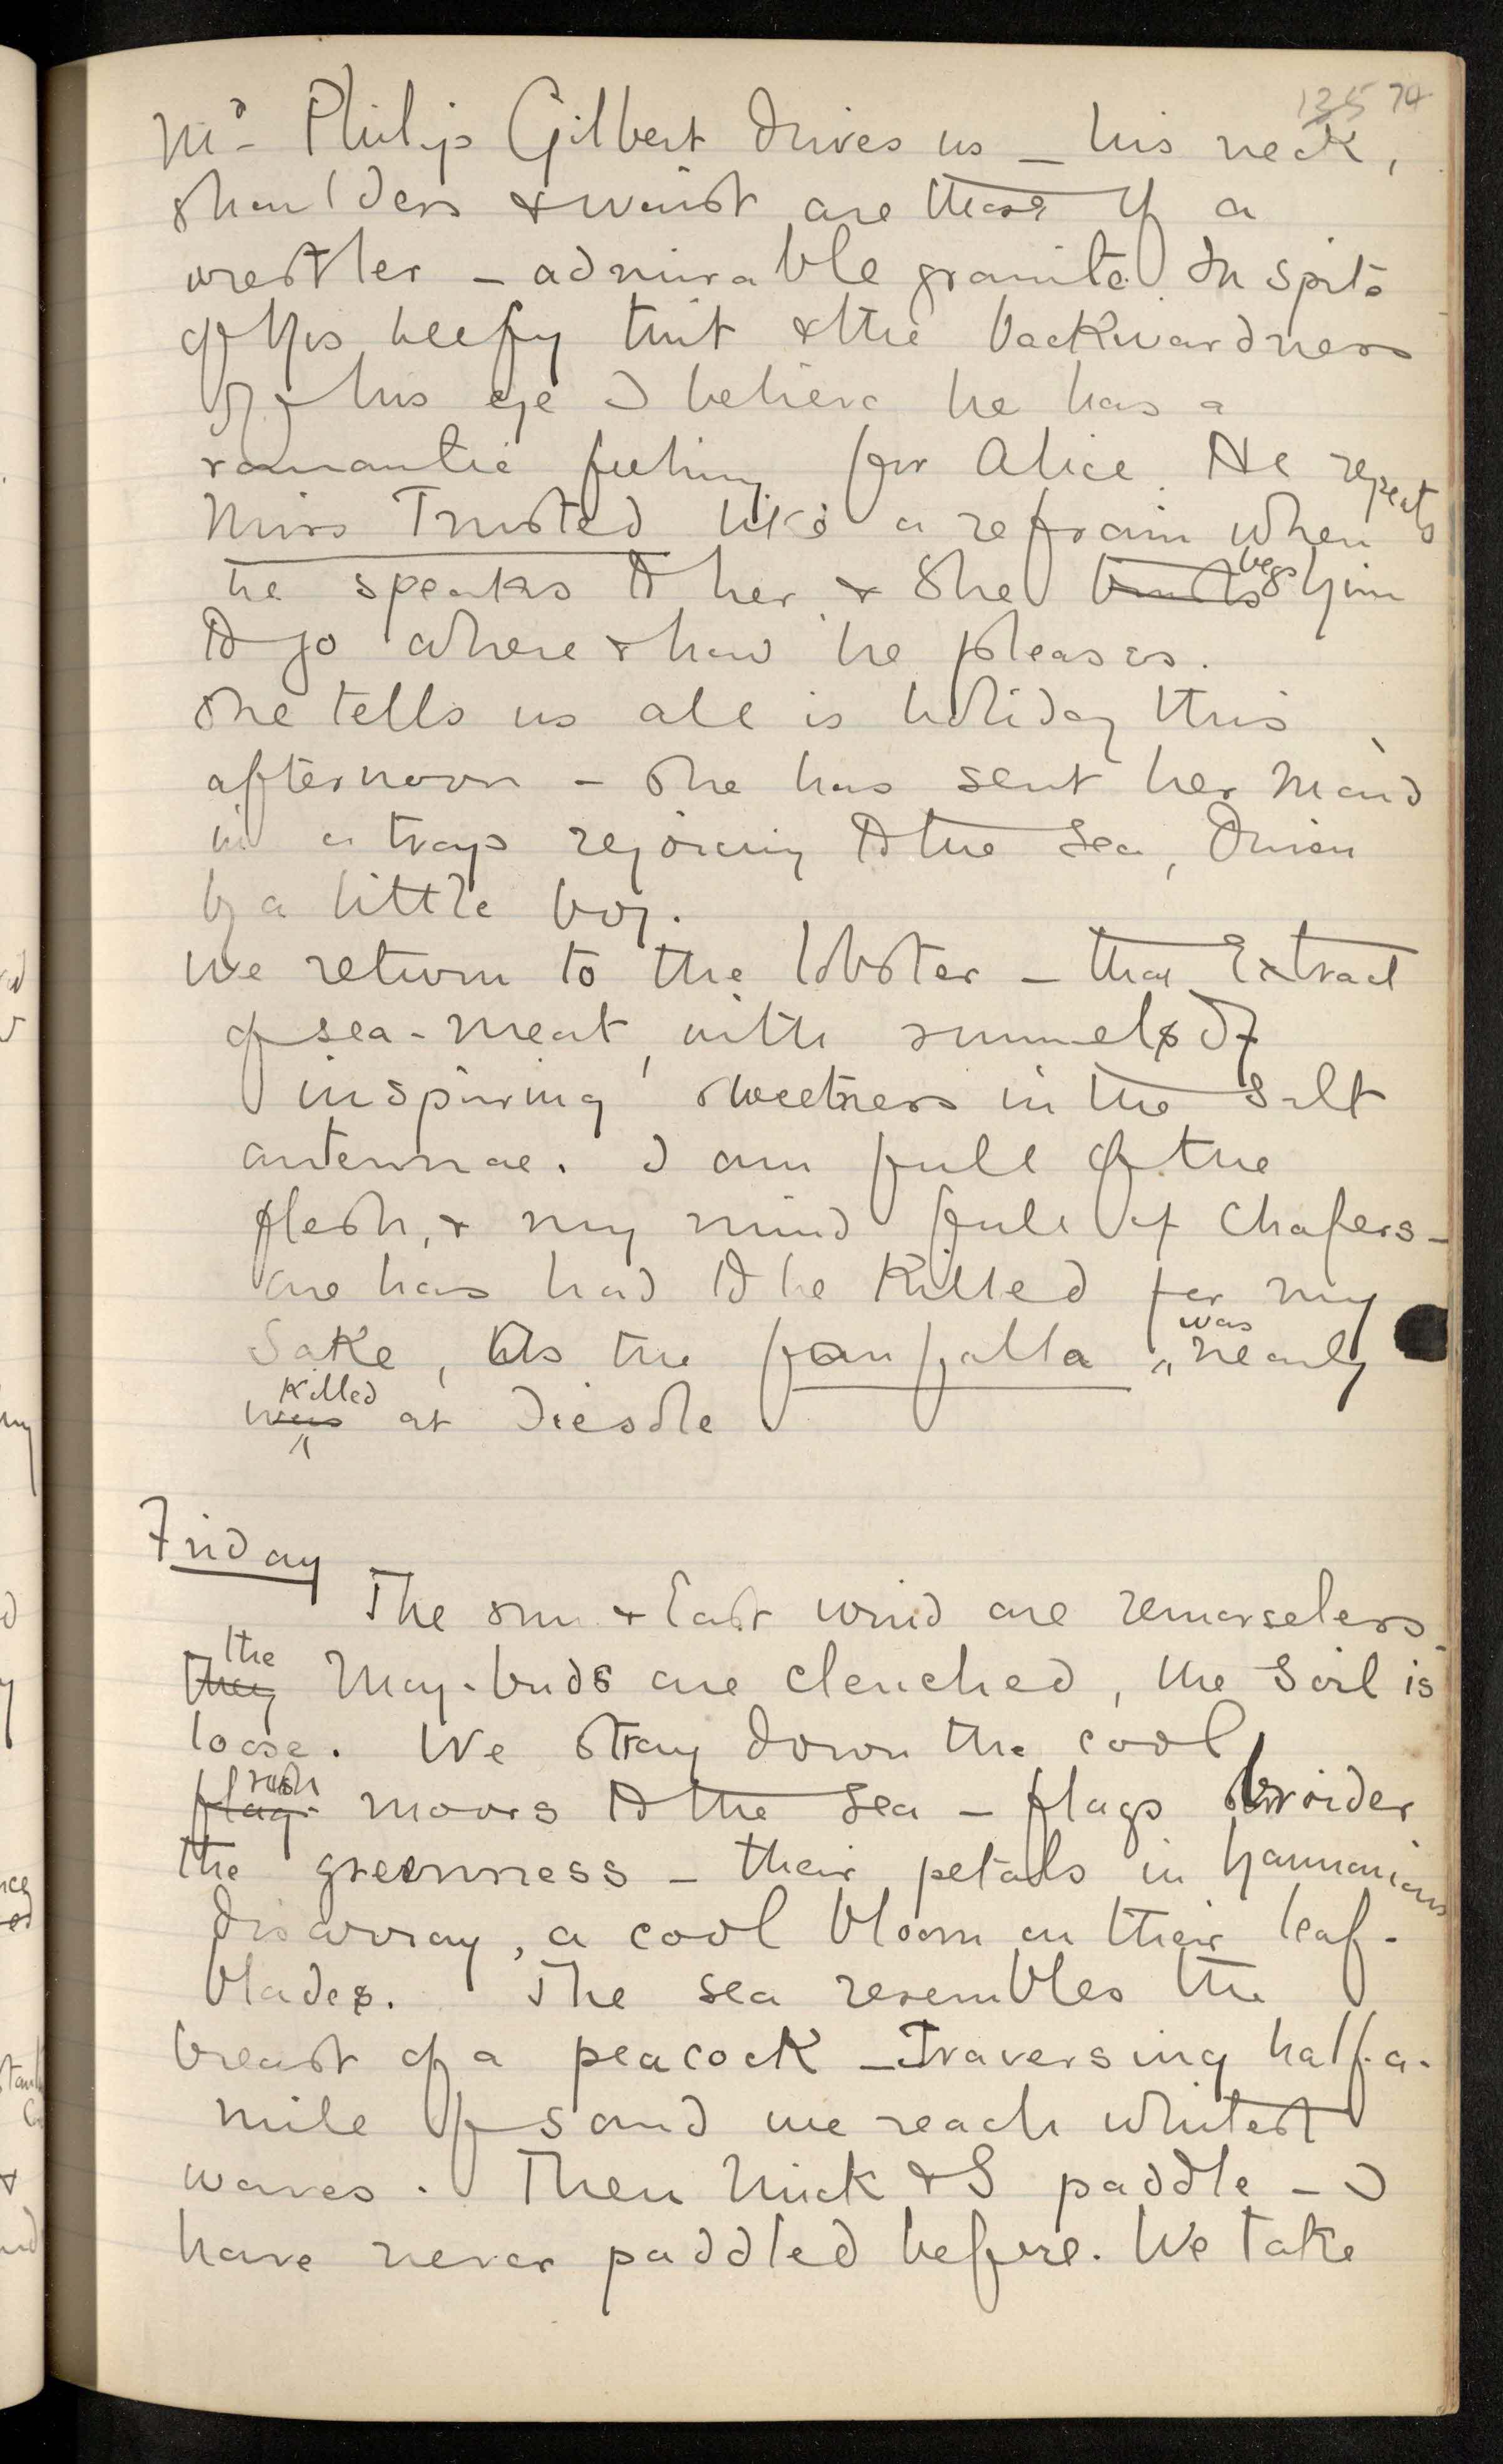 135 74
Mr Philip Gilbert drives us _ his neck,
shoulders & waist are those of a
wrestler _ admirable granite. In spite
of his beefy tint & the backwardness
of his eye I believe he has a
romantic feeling for Alice. He repeats
Miss Trusted like a refrain when
he speaks to her & she begs him
to go where & how he pleases.
She tells us all is holiday this
afternoon - She has sent her maid
in a trap rejoicing to the Sea, driven
by a little boy.
We return to the lobster - that Extract
of sea-meat, with runnels of
inspiring sweetness in the salt
antennae. I am full of the
flesh, & my mind full of Chafers -
one has had to be Killed for my
Sake, as the farfalla was nearly
was killed at Fiesole
Friday
The sun & East wind are remorseless -
They the May-buds are clenched, the Soil is
loose. We stray down the cool
flag- rush moors to the Sea - flags broider
the greenness - their petals in harmonious
disarray, a cool bloom on their leaf-
blades. The sea resembles the
breast of a peacock - Traversing half-a-
mile of sand we reach whitest
waves. Then Mick & I paddle - I
have never paddled before. We take